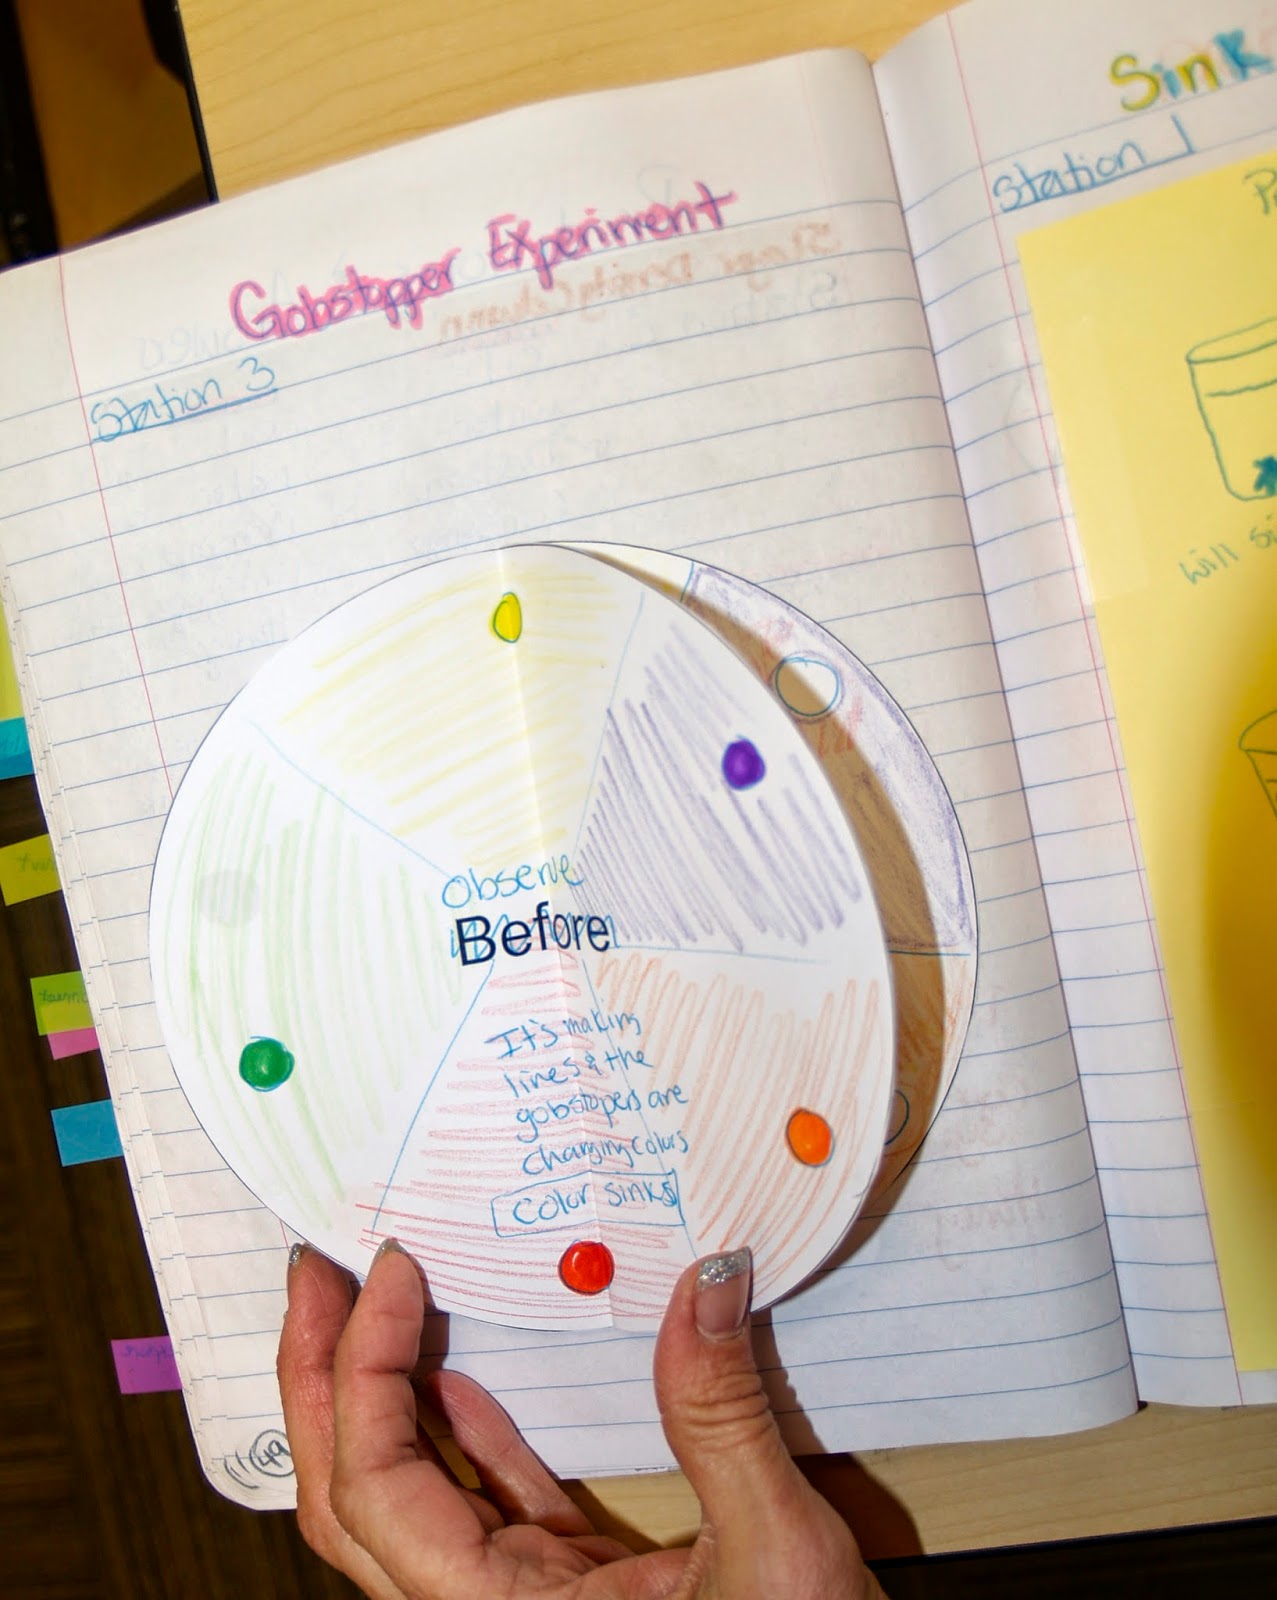 Gobstopper Experiment
Station 3
Observe
Before
It's making
lines & the
gobstopers are
changing colors
Color sinks
49
Sink
Station 1
will si